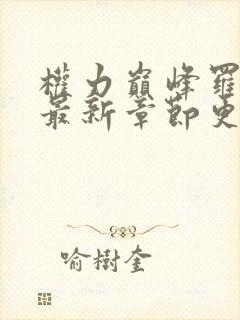 權力巔峰羅
最新章節更
喻樹奎